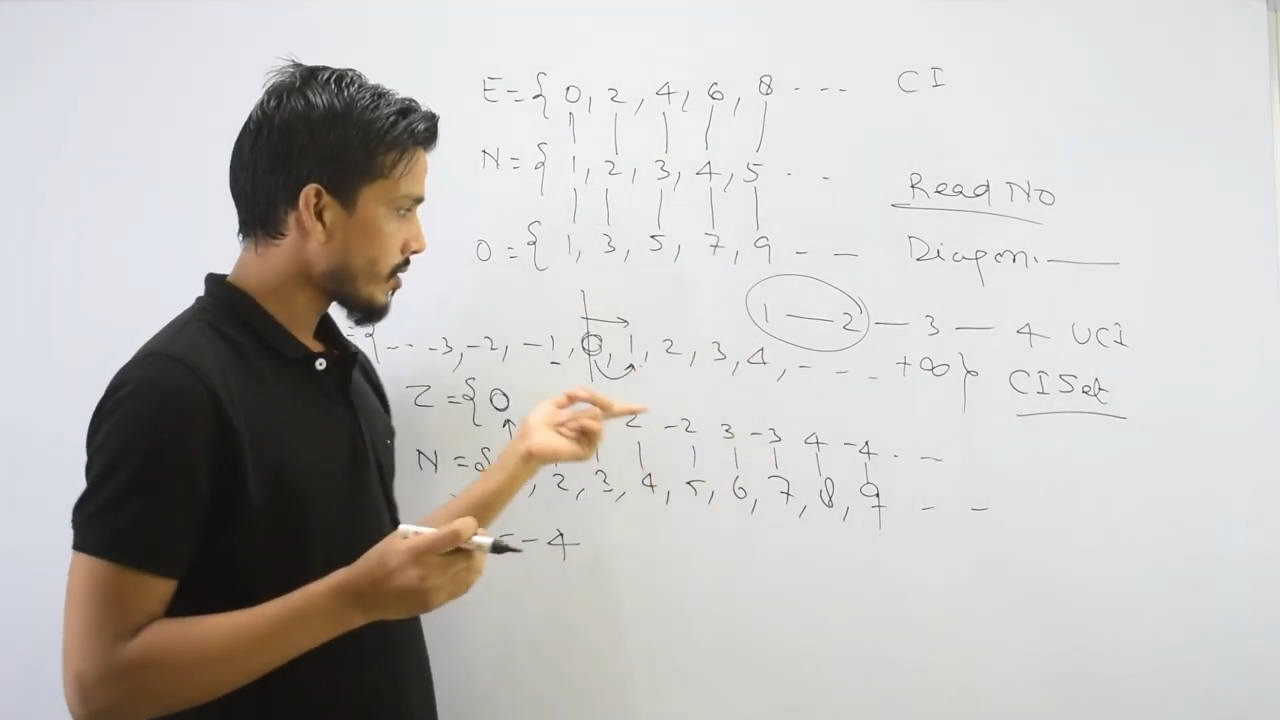 E = { 0, 2, 4, 6, 8 - - - CI
N = { 1, 2, 3, 4, 5 - -
Read No
O = { 1, 3, 5, 7, 9 - -
Diagon.
1 — 2 — 3 — 4 UCI
= { - - -3, -2, -1, 0, 1, 2, 3, 4, - - - +∞ }
CI Set
Z = { 0 2 -2 3 -3 4 -4 - -
N = { , 2, 3, 4, 5, 6, 7, 8, 9 - -
= -4